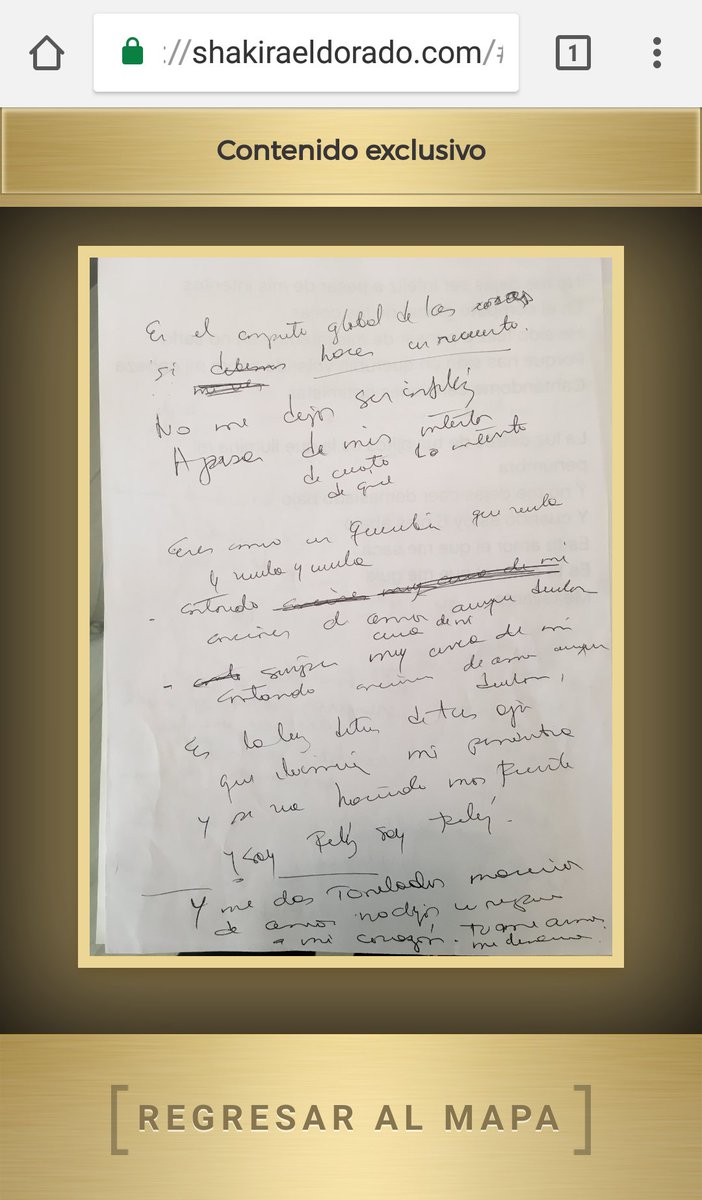 ://shakiraeldorado.com/#
1
Contenido exclusivo
En el computo global de las cosas
si debemos hacer un recuento.
No me dejas ser infeliz
A pesar de mis intentos
de cuanto lo intento
de que
Eres como un querubín que vuela
y vuela y vuela
- cantando canciones muy cerca de mi
canciones de amor aunque duelan
cerca de mi
- siempre muy cerca de mi
cantando canciones de amor aunque
duelan,
Es la luz detras de tus ojos
que ilumina mi penumbra
Y se va haciendo mas fuerte
Y soy feliz soy feliz.
Y me das Toneladas
de amor no dejas
a mi corazón. tu me amas
REGRESAR AL MAPA